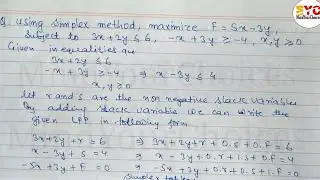 SYC
Q. Using Simplex method, maximize F = 5x - 3y,
Subject to 3x + 2y ≤ 6, -x + 3y ≥ -4, x, y ≥ 0
Given inequalities are
3x + 2y ≤ 6
-x + 3y ≥ -4 ⇒ x - 3y ≤ 4
x, y ≥ 0
Let r and s are the non negative slack variables
By adding slack variable we can write the
given LPP in following form
3x + 2y + r = 6 ⇒ 3x + 2y + r + 0.s + 0.F = 6
x - 3y + s = 4 ⇒ x - 3y + 0.r + 1.s + 0.F = 4
-5x + 3y + F = 0 ⇒ -5x + 3y + 0.r + 0.s + 1.F = 0
Simplex